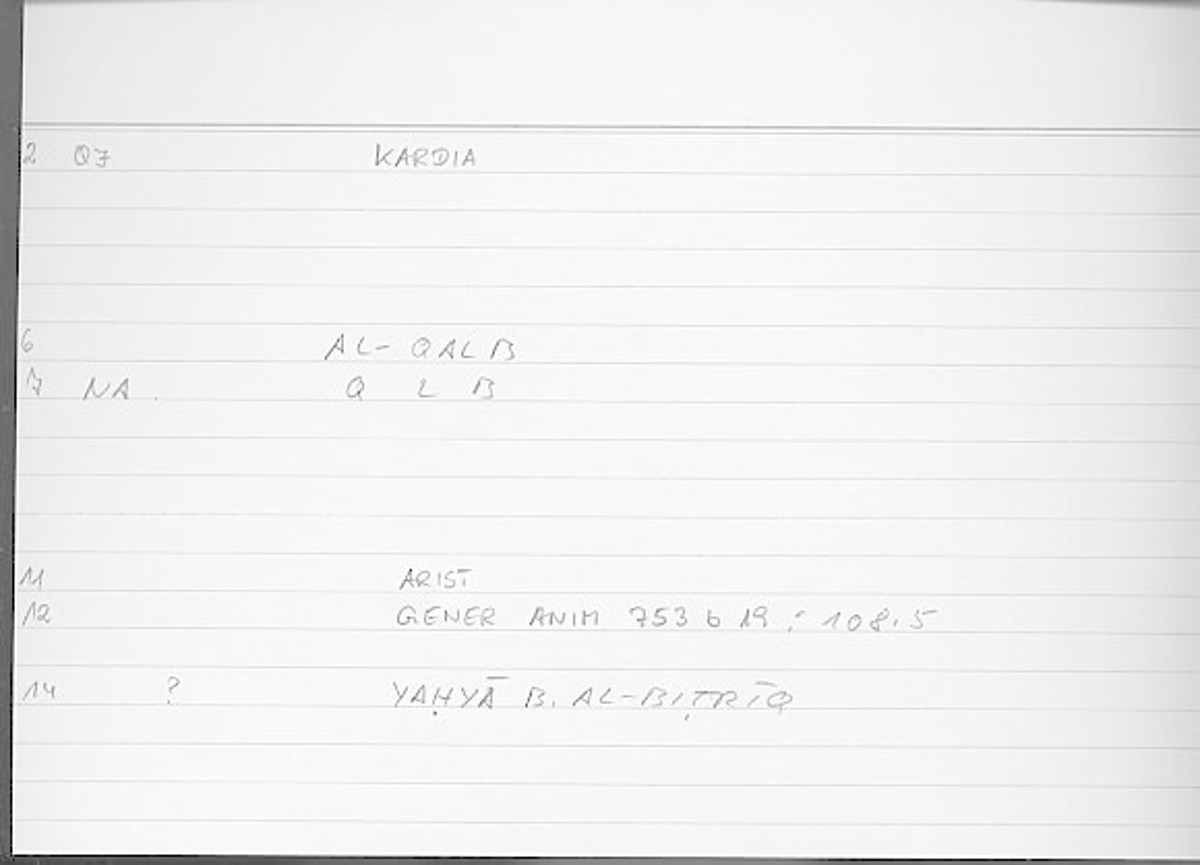 2 Q7 KARDIA
6 AL-QALB
7 NA. Q L B
11 ARIST
12 GENER ANIM 753 b 19 : 108.5
14 ? YAḤYĀ B. AL-BIṬRĪQ